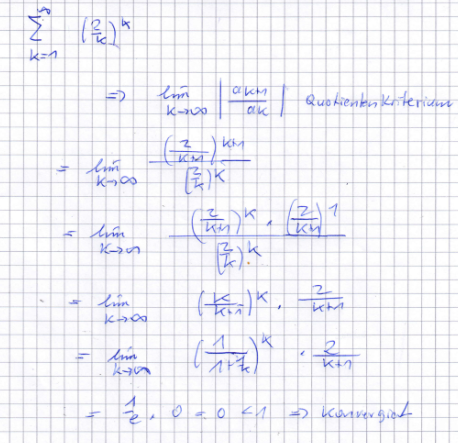 ∞
∑ (2/k)^k
k=1
=> lim k→∞ |a_{k+1}/a_k| Quotientenkriterium
= lim k→∞ (2/(k+1))^{k+1} / (2/k)^k
= lim k→∞ (2/(k+1))^k · (2/(k+1))^1 / (2/k)^k
= lim k→∞ (k/(k+1))^k · 2/(k+1)
= lim k→∞ (1/(1+1/k))^k · 2/(k+1)
= 1/e · 0 = 0 < 1 => konvergiert